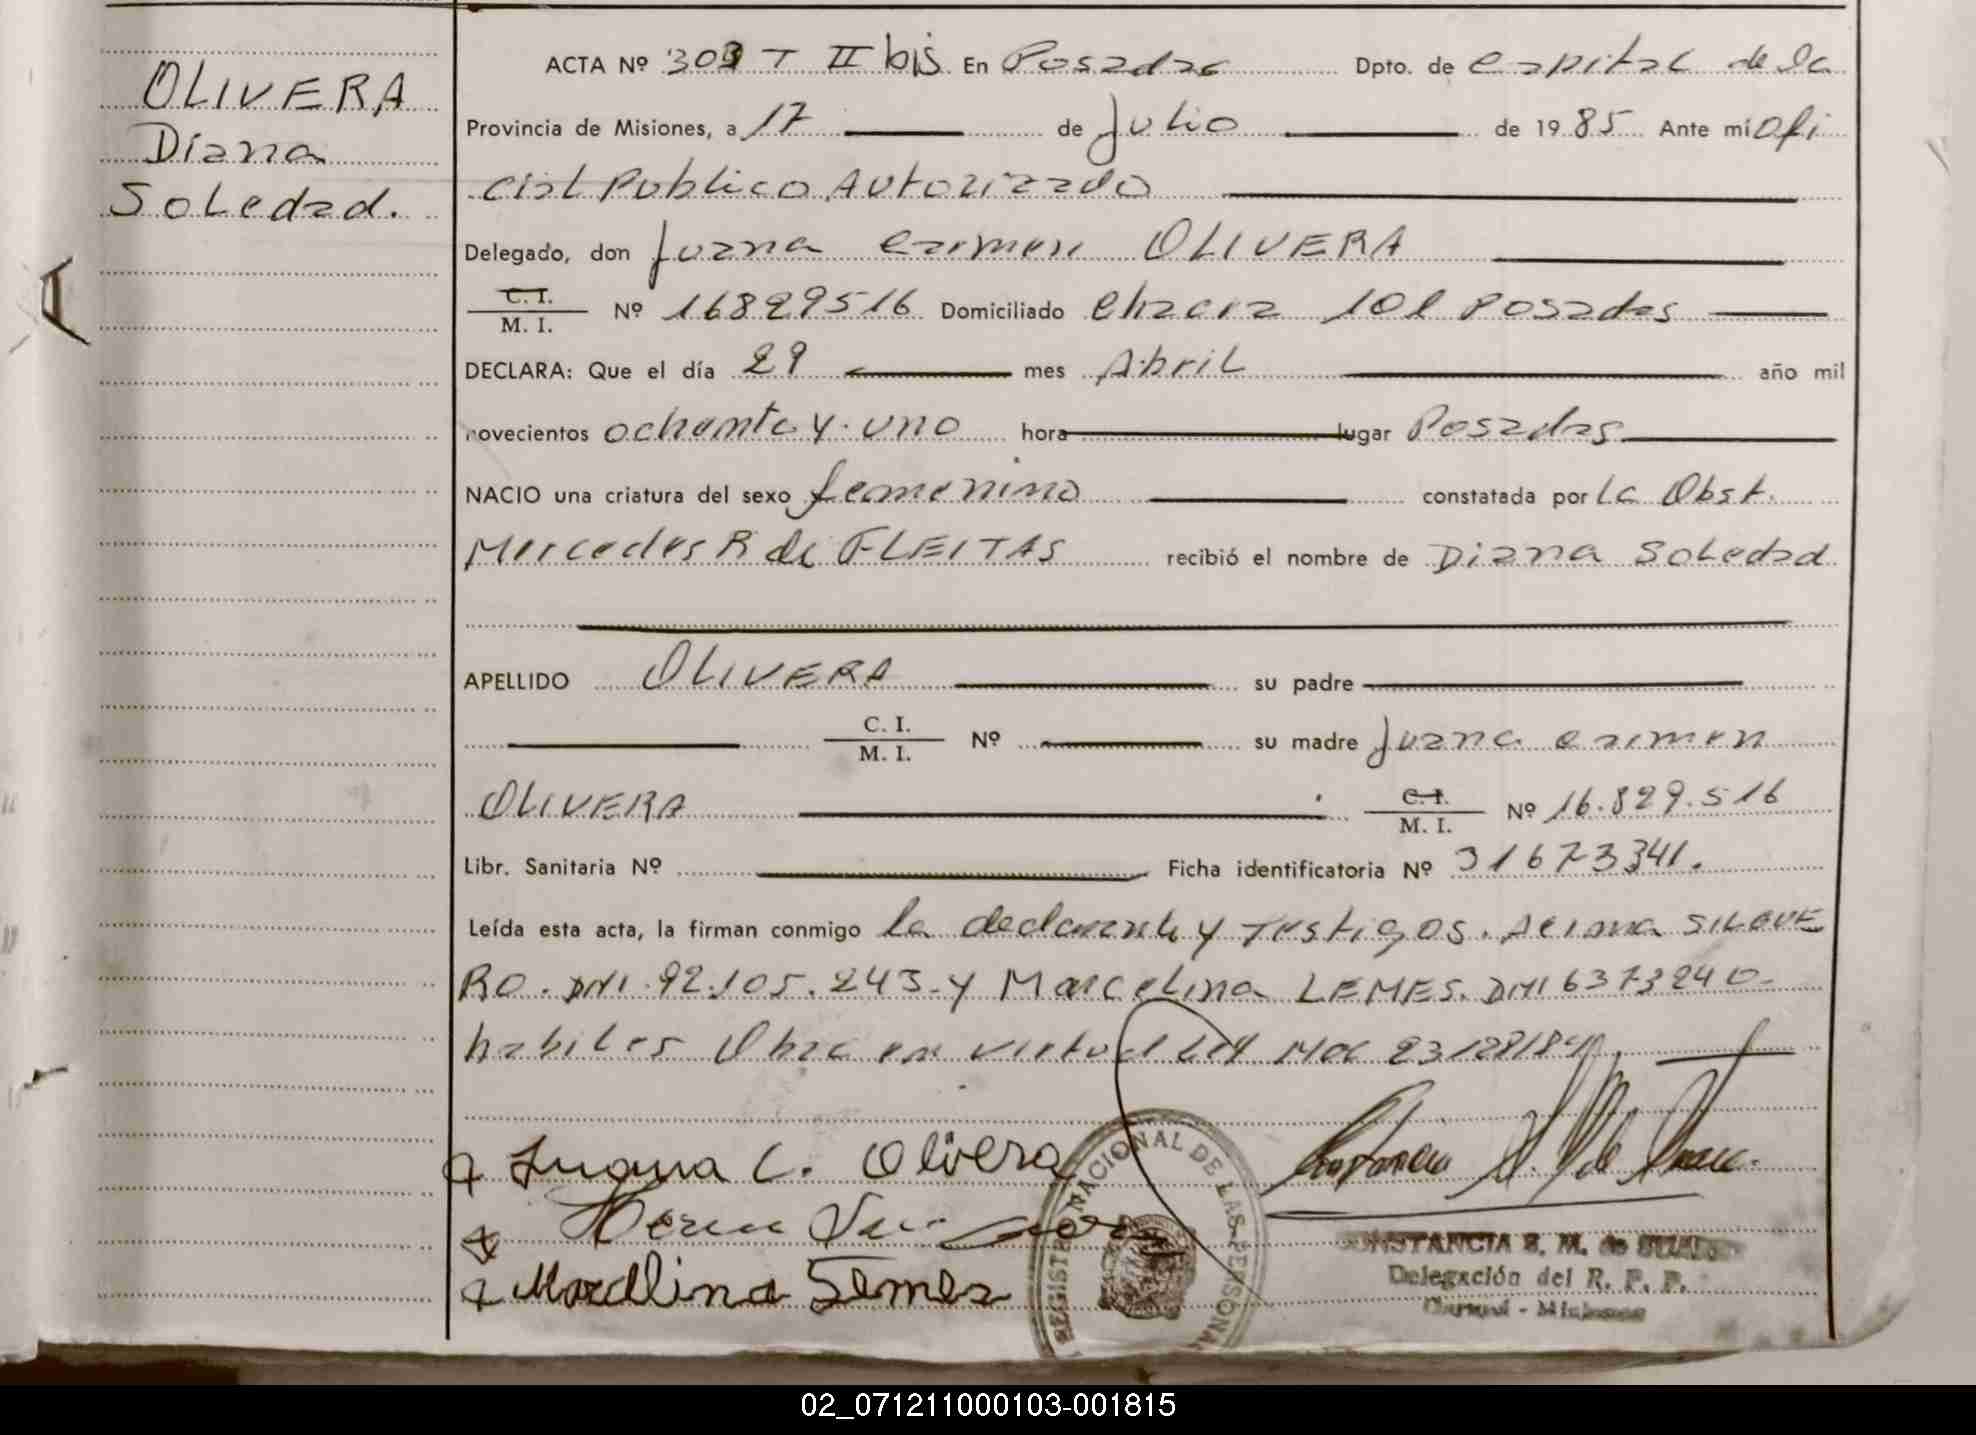 OLIVERA
Diana
Soledad.
ACTA Nº 303 T II bis En Posadas Dpto. de Capital de la
Provincia de Misiones, a 17 de Julio de 1985 Ante mí Ofi
cial Publico Autorizado
Delegado, don Juana Carmen OLIVERA
C. I. / M. I. Nº 16829516 Domiciliado Chacra 101 Posadas
DECLARA: Que el día 29 mes Abril año mil
novecientos ochenta y uno hora lugar Posadas
NACIO una criatura del sexo femenino constatada por la Obst.
Mercedes R de FLEITAS recibió el nombre de Diana Soledad
APELLIDO OLIVERA su padre
C. I. / M. I. Nº su madre Juana Carmen
OLIVERA C. I. / M. I. Nº 16.829.516
Libr. Sanitaria Nº Ficha identificatoria Nº 31673341.
Leída esta acta, la firman conmigo la declarante y Testigos. SILVE
RO. DNI. 92.105.243 y Marcelina LEMES. DNI 6373240
habiles Obra en virtud Ley 23128/84
Juana C. Olivera
Marcelina Lemes
REGISTRO NACIONAL DE LAS PERSONAS
CONSTANCIA S. M. de
Delegación del R. P. P.
- Misiones
02_071211000103-001815